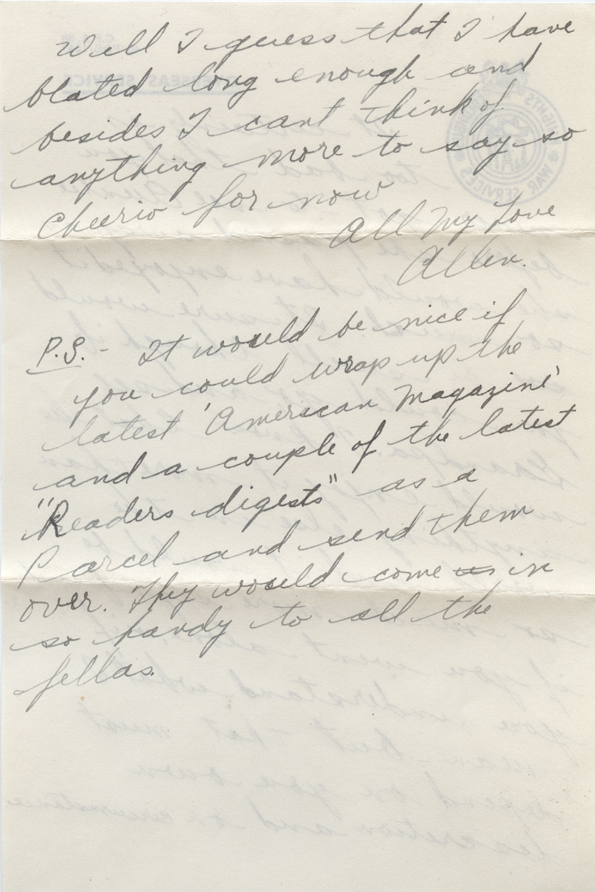 Well I guess that I have
blated long enough and
besides I cant think of
anything more to say so
Cheerio for now
All My Love
Allen.
P.S. - It would be nice if
you could wrap up the
latest 'American Magazine'
and a couple of the latest
"Readers digests" as a
Parcel and send them
over. They would come in
so handy to all the
fellas.